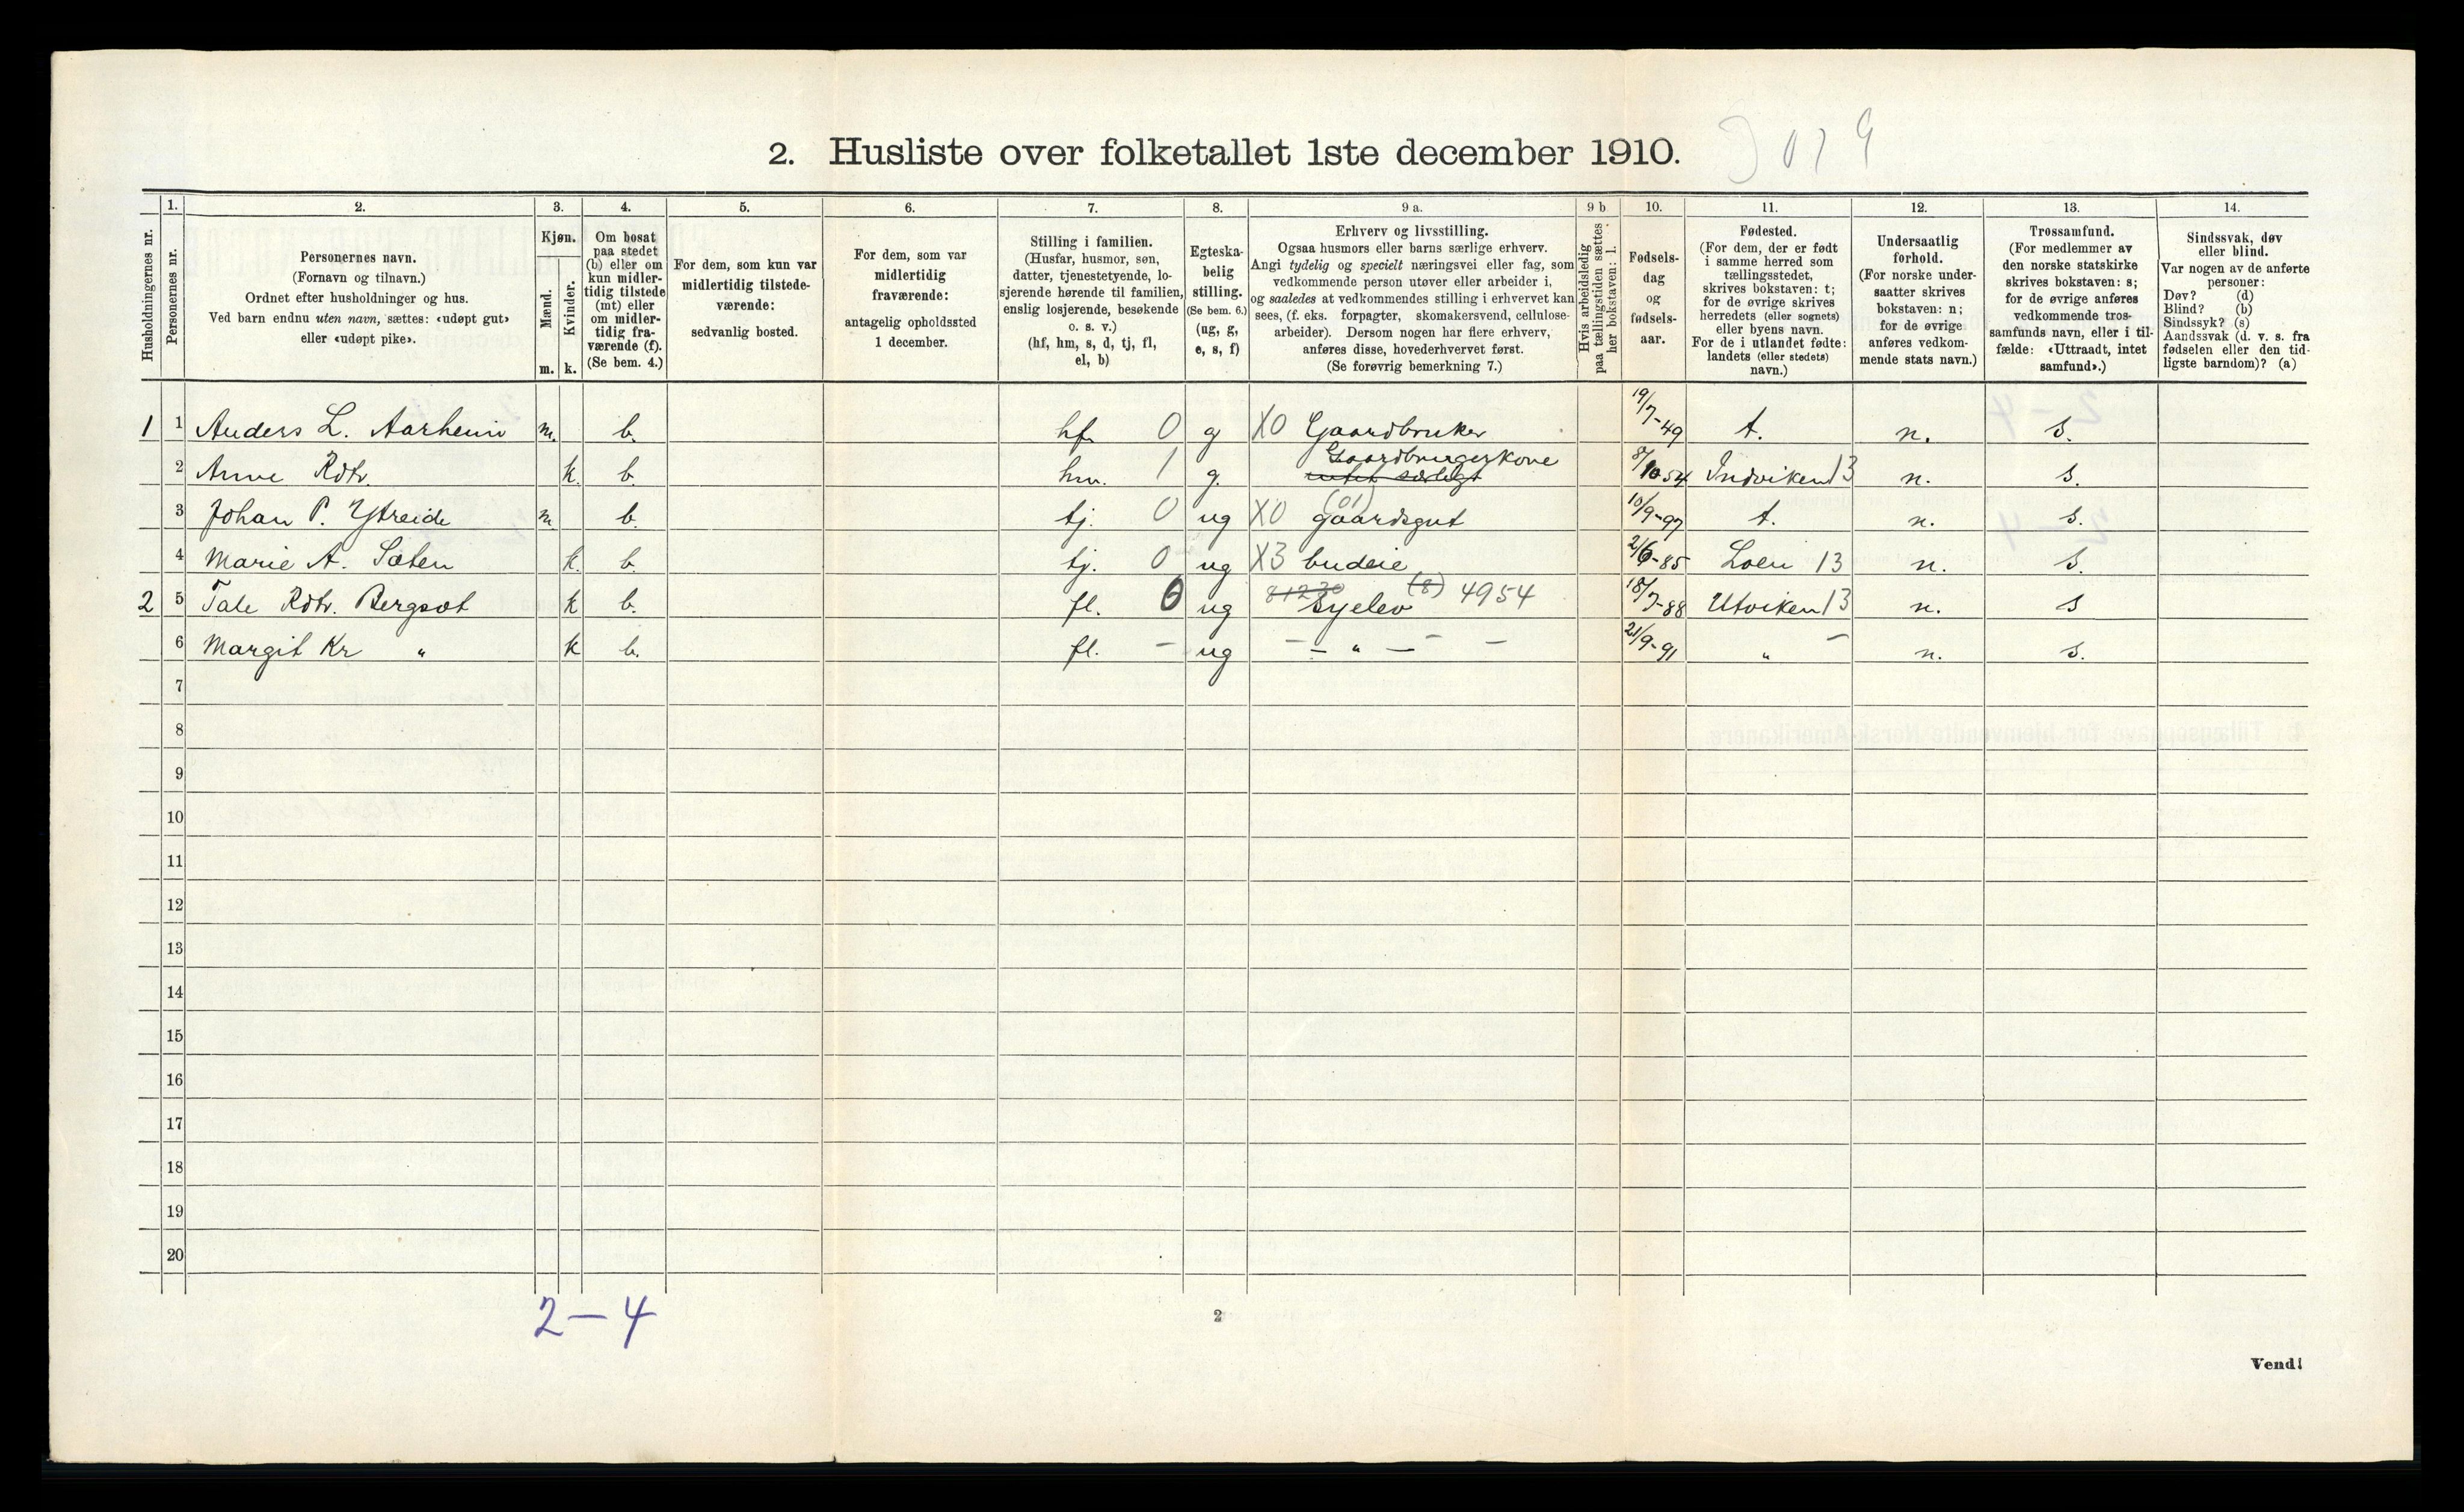 2. Husliste over folketallet 1ste december 1910.
Husholdningernes nr.
1.
Personernes nr.
2.
Personernes navn.
(Fornavn og tilnavn.)
Ordnet efter husholdninger og hus.
Ved barn endnu uten navn, sættes: «udøpt gut»
eller «udøpt pike».
3.
Kjøn.
Mænd.
Kvinder.
m. k.
4.
Om bosat
paa stedet
(b) eller om
kun midler-
tidig tilstede
(mt) eller
om midler-
tidig fra-
værende (f).
(Se bem. 4.)
5.
For dem, som kun var
midlertidig tilstede-
værende:
sedvanlig bosted.
6.
For dem, som var
midlertidig
fraværende:
antagelig opholdssted
1 december.
7.
Stilling i familien.
(Husfar, husmor, søn,
datter, tjenestetyende, lo-
sjerende hørende til familien,
enslig losjerende, besøkende
o. s. v.)
(hf, hm, s, d, tj, fl,
el, b)
8.
Egteska-
belig
stilling.
(Se bem. 6.)
(ug, g,
e, s, f)
9 a.
Erhverv og livsstilling.
Ogsaa husmors eller barns særlige erhverv.
Angi tydelig og specielt næringsvei eller fag, som
vedkommende person utøver eller arbeider i,
og saaledes at vedkommendes stilling i erhvervet kan
sees, (f. eks. forpagter, skomakersvend, cellulose-
arbeider). Dersom nogen har flere erhverv,
anføres disse, hovederhvervet først.
(Se forøvrig bemerkning 7.)
9 b
Hvis arbeidsledig
paa tællingstiden sættes
her bokstaven: l.
10.
Fødsels-
dag
og
fødsels-
aar.
11.
Fødested.
(For dem, der er født
i samme herred som
tællingsstedet,
skrives bokstaven: t;
for de øvrige skrives
herredets (eller sognets)
eller byens navn.
For de i utlandet fødte:
landets (eller stedets)
navn.)
12.
Undersaatlig
forhold.
(For norske under-
saatter skrives
bokstaven: n;
for de øvrige
anføres vedkom-
mende stats navn.)
13.
Trossamfund.
(For medlemmer av
den norske statskirke
skrives bokstaven: s;
for de øvrige anføres
vedkommende tros-
samfunds navn, eller i til-
fælde: «Uttraadt, intet
samfund».)
14.
Sindssvak, døv
eller blind.
Var nogen av de anførte
personer:
Døv? (d)
Blind? (b)
Sindssyk? (s)
Aandssvak (d. v. s. fra
fødselen eller den tid-
ligste barndom)? (a)
1 1 Anders L. Aarheim m. b. hf. 0 g X0 Gaardbruker 19/7-49 t. n. s.
2 Anne Rdtr. k. b. hm. 1 g. Gaardbrugerskone 8/10 54 Indviken 13 n. s.
3 Johan P. Ytreide m b. tj. 0 ug X0 (01) gaardsgut 10/9-97 t. n. s.
4 Marie A. Sæten k. b. tj. 0 ug X3 budeie 2/6-85 Loen 13 n. s.
2 5 Tale Rdtr. Bergset k b. fl. 0 ug 81230 Syelev (8) 4954 18/7-88 Utviken 13 n. s
6 Margit Kr " k b. fl. - ug - " - 21/9-91 " - n. s.
7
8
9
10
11
12
13
14
15
16
17
18
19
20
2-4
2
Vend!